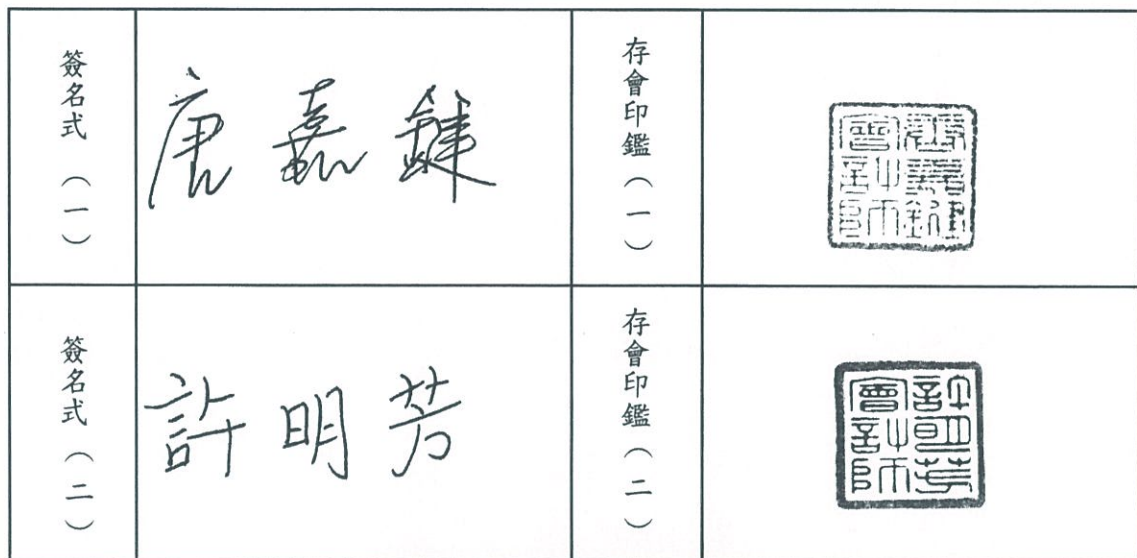 簽名式（一）
唐嘉鍵
存會印鑑（一）
唐嘉鍵會計師
簽名式（二）
許明芳
存會印鑑（二）
許明芳會計師